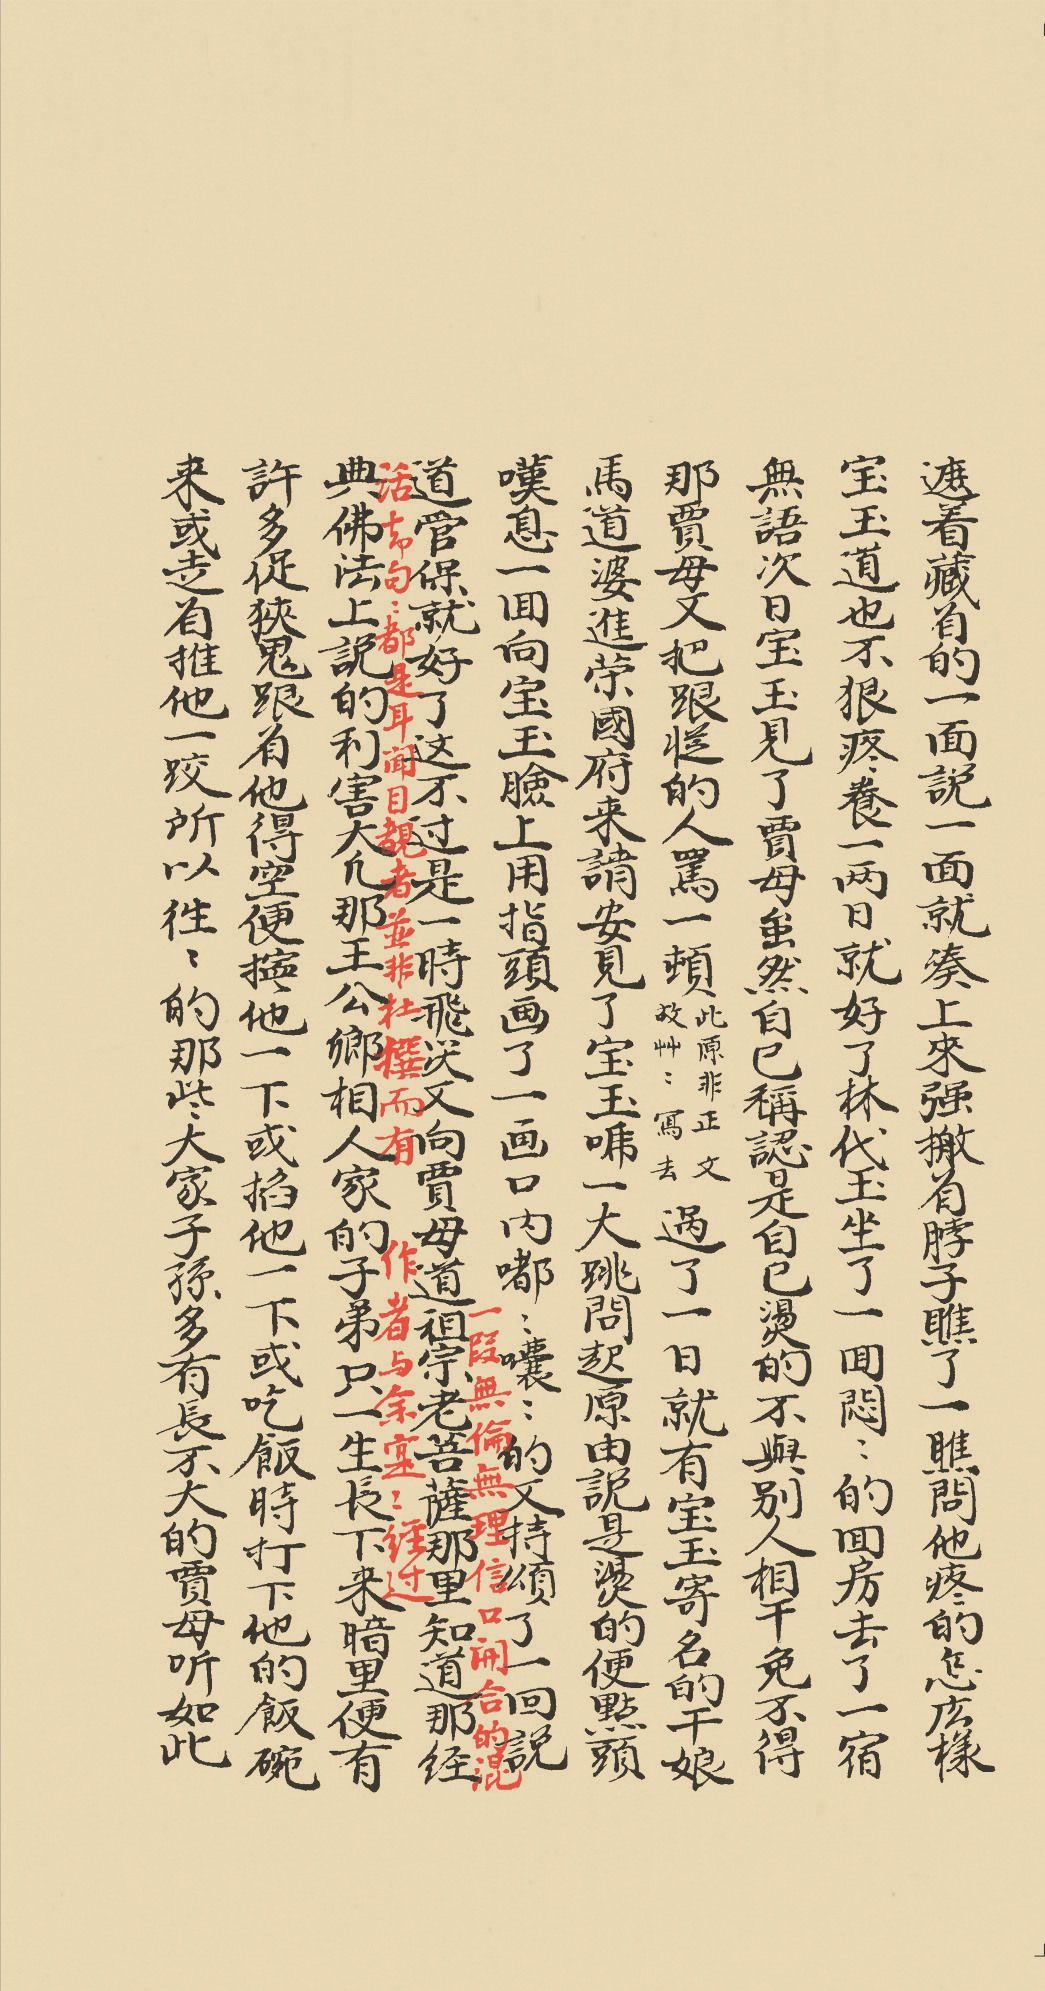 遮着藏着的一面説一面就凑上來强搬着脖子瞧了一瞧問他疼的怎広樣
宝玉道也不狠疼養一两日就好了林代玉坐了一回悶〻的回房去了一宿
無語次日宝玉見了賈母虽然自已稱認是自已燙的不與别人相干免不得
那賈母又把跟從的人罵一頓
此原非正文
故艸〻寫去
過了一日就有宝玉寄名的干娘
馬道婆進荣國府来請安見了宝玉唬一大跳問起原由説是燙的便點頭
嘆息一回向宝玉臉上用指頭画了一画口内嘟〻囔〻的又持頌了一回説
道管保就好了这不过是一時飛灾又向賈母道祖宗老菩薩那里知道那经
一段無倫無理信口開合的混
典佛法上説的利害大凢那王公鄉相人家的子弟只一生長下来暗里便有
活却句〻都是耳闻目覩者並非杜撰而有 作者与余实〻经过
許多促狹鬼跟着他得空便擰他一下或掐他一下或吃飯時打下他的飯碗
来或走着推他一跤所以徃〻的那些大家子孫多有長不大的賈母听如此